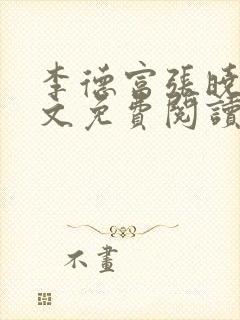 李德富張曉
文免費閱讀
不畫